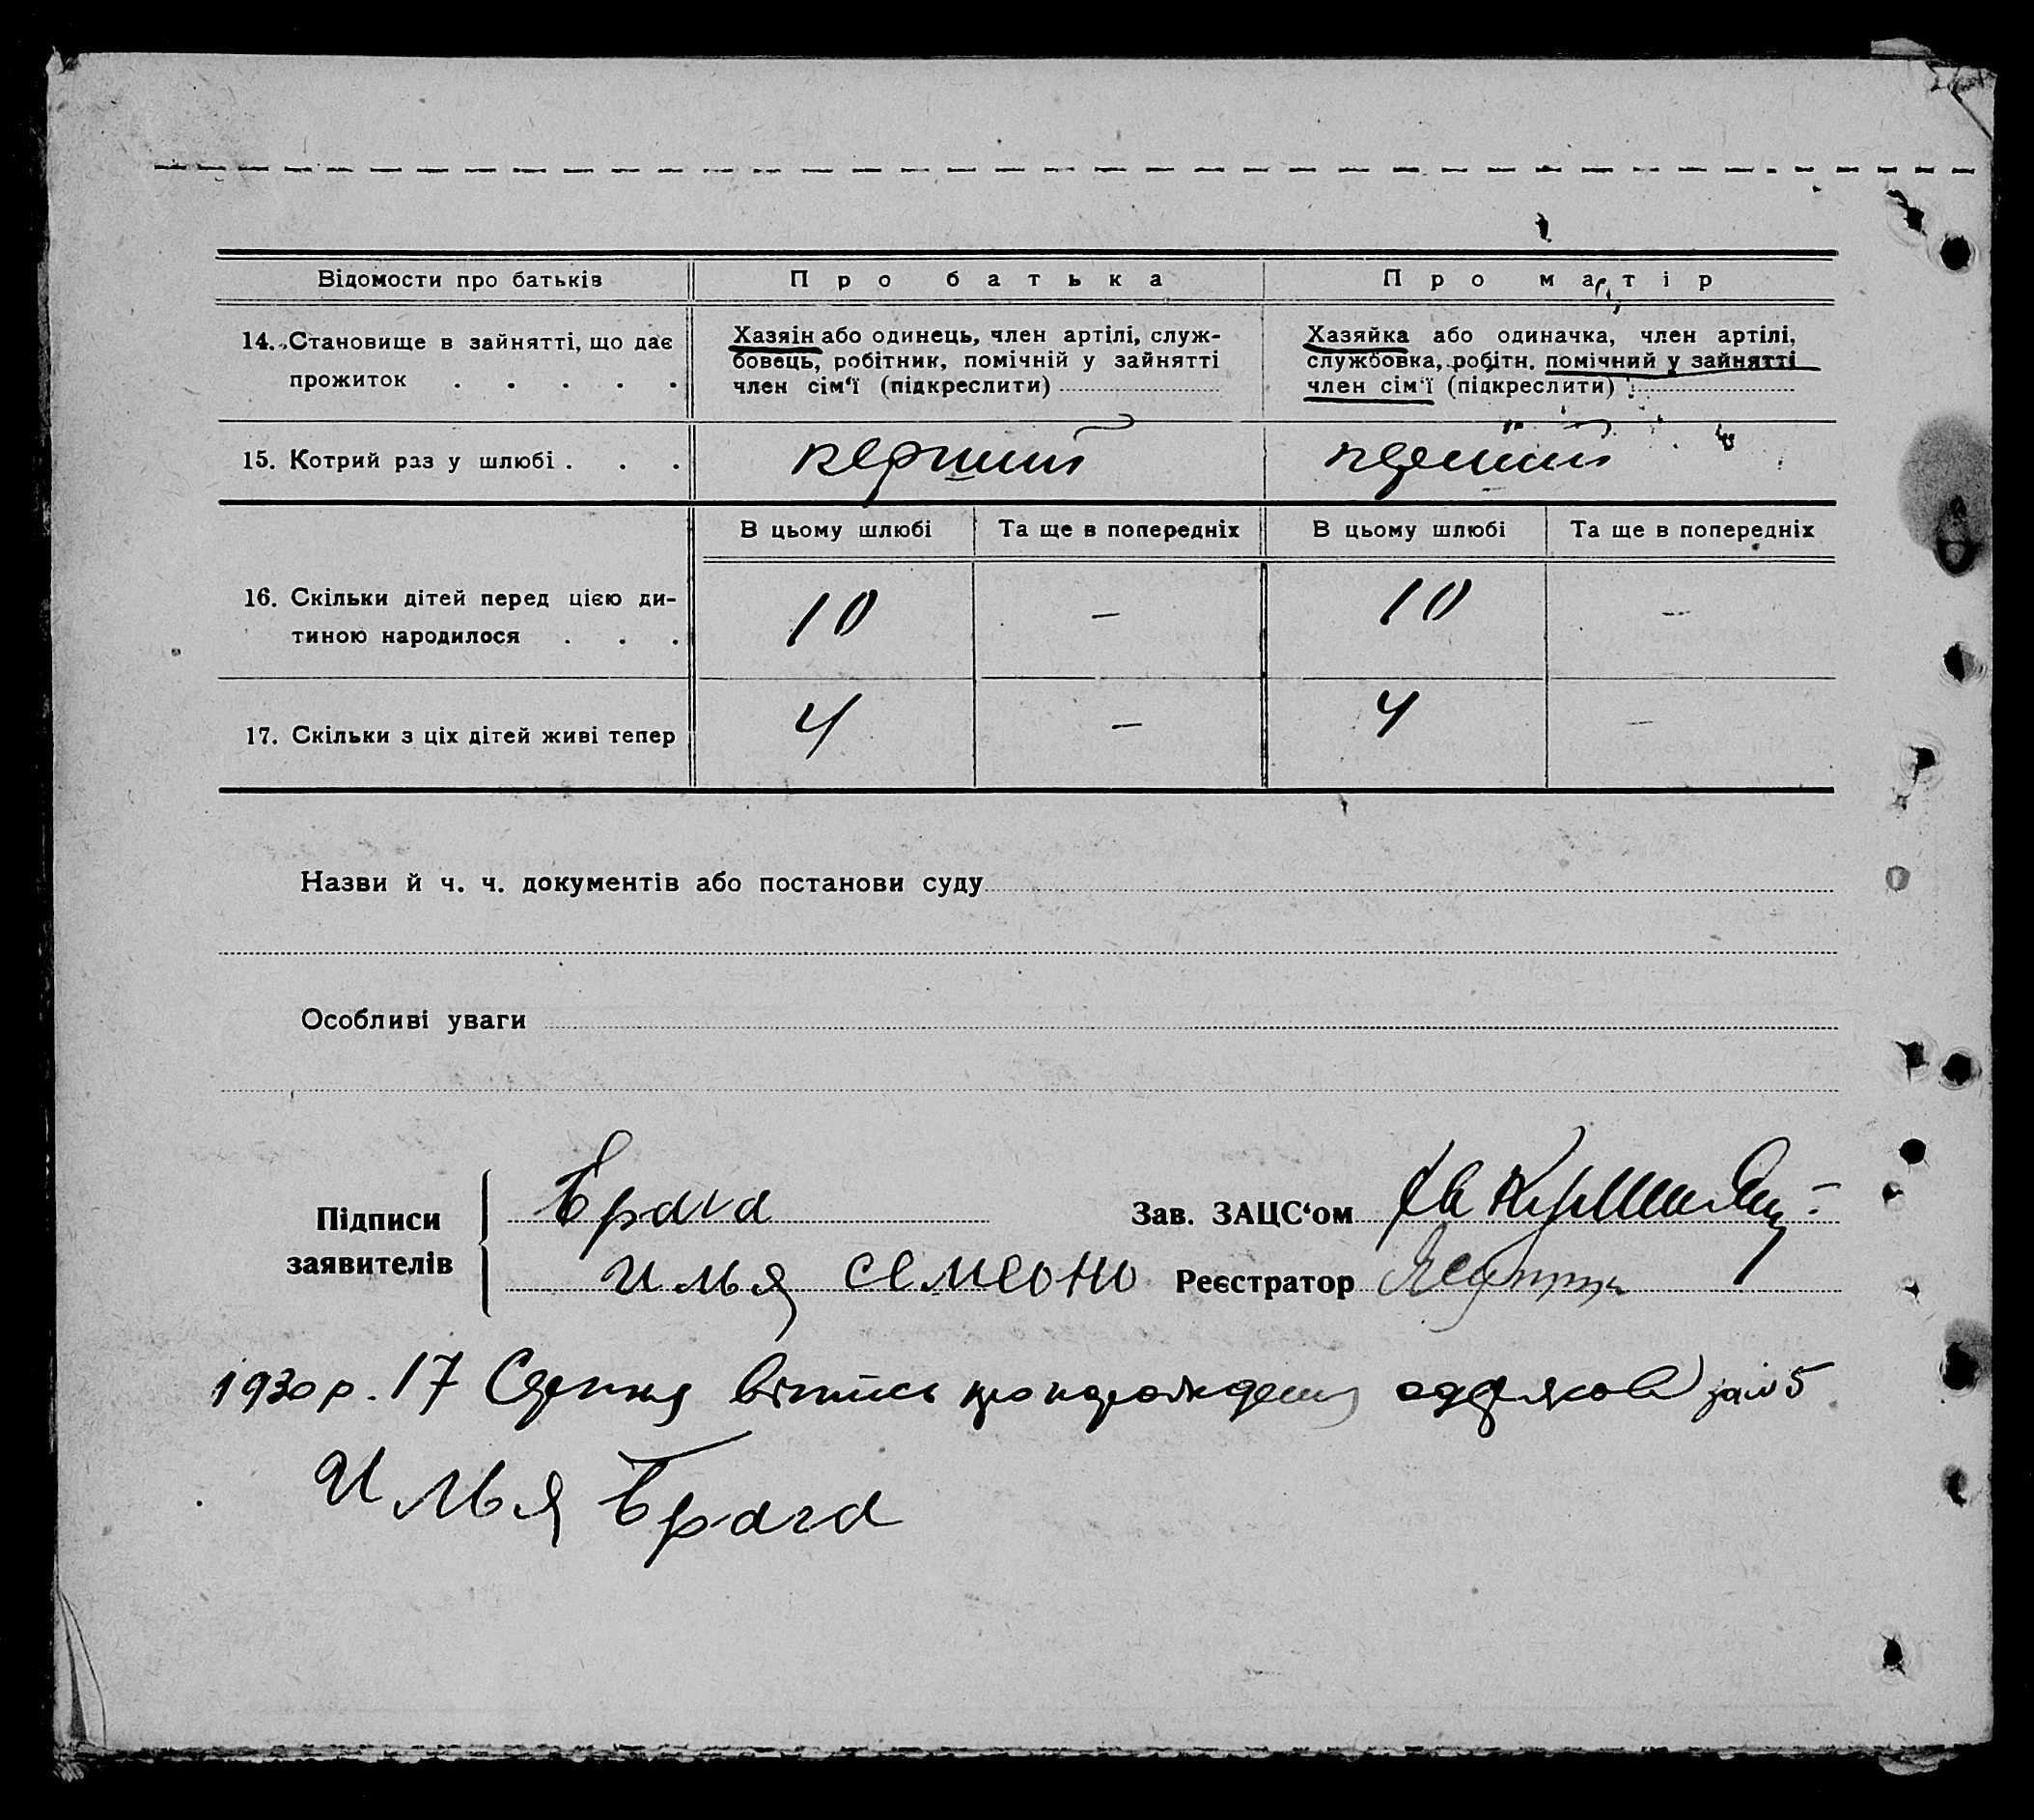 Відомости про батьків
Про батька
Про матір
14. Становище в зайнятті, що дає
прожиток . . . . .
Хазяін або одинець, член артілі, служ-
бовець, робітник, помічній у зайнятті
член сім‘ї (підкреслити)
Хазяйка або одиначка, член артілі,
службовка, робітн. помічний у зайнятті
член сім‘ї (підкреслити)
15. Котрий раз у шлюбі . . .
перший
перший
В цьому шлюбі
Та ще в попередніх
В цьому шлюбі
Та ще в попередніх
16. Скільки дітей перед цією ди-
тиною народилося . . .
10
–
10
–
17. Скільки з ціх дітей живі тепер
4
–
4
–
Назви й ч. ч. документів або постанови суду
Особливі уваги
Підписи
заявителів
Брага
Илья
Зав. ЗАЦС‘ом
Реєстратор
1930 р. 17 Серпня
Илья Брага